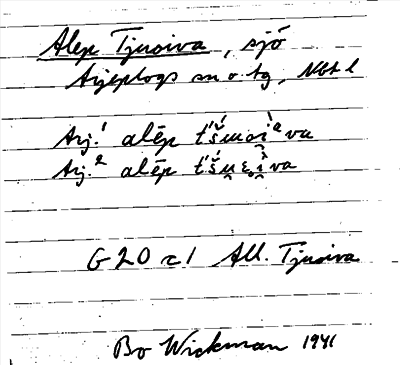 Alep Tjuoiva, sjö
Arjeplogs sn o. tg, Nbt l
Arj.¹
alēp
Arj.²
alēp
G20 c1 All. Tjuoiva
Bo Wickman 1941